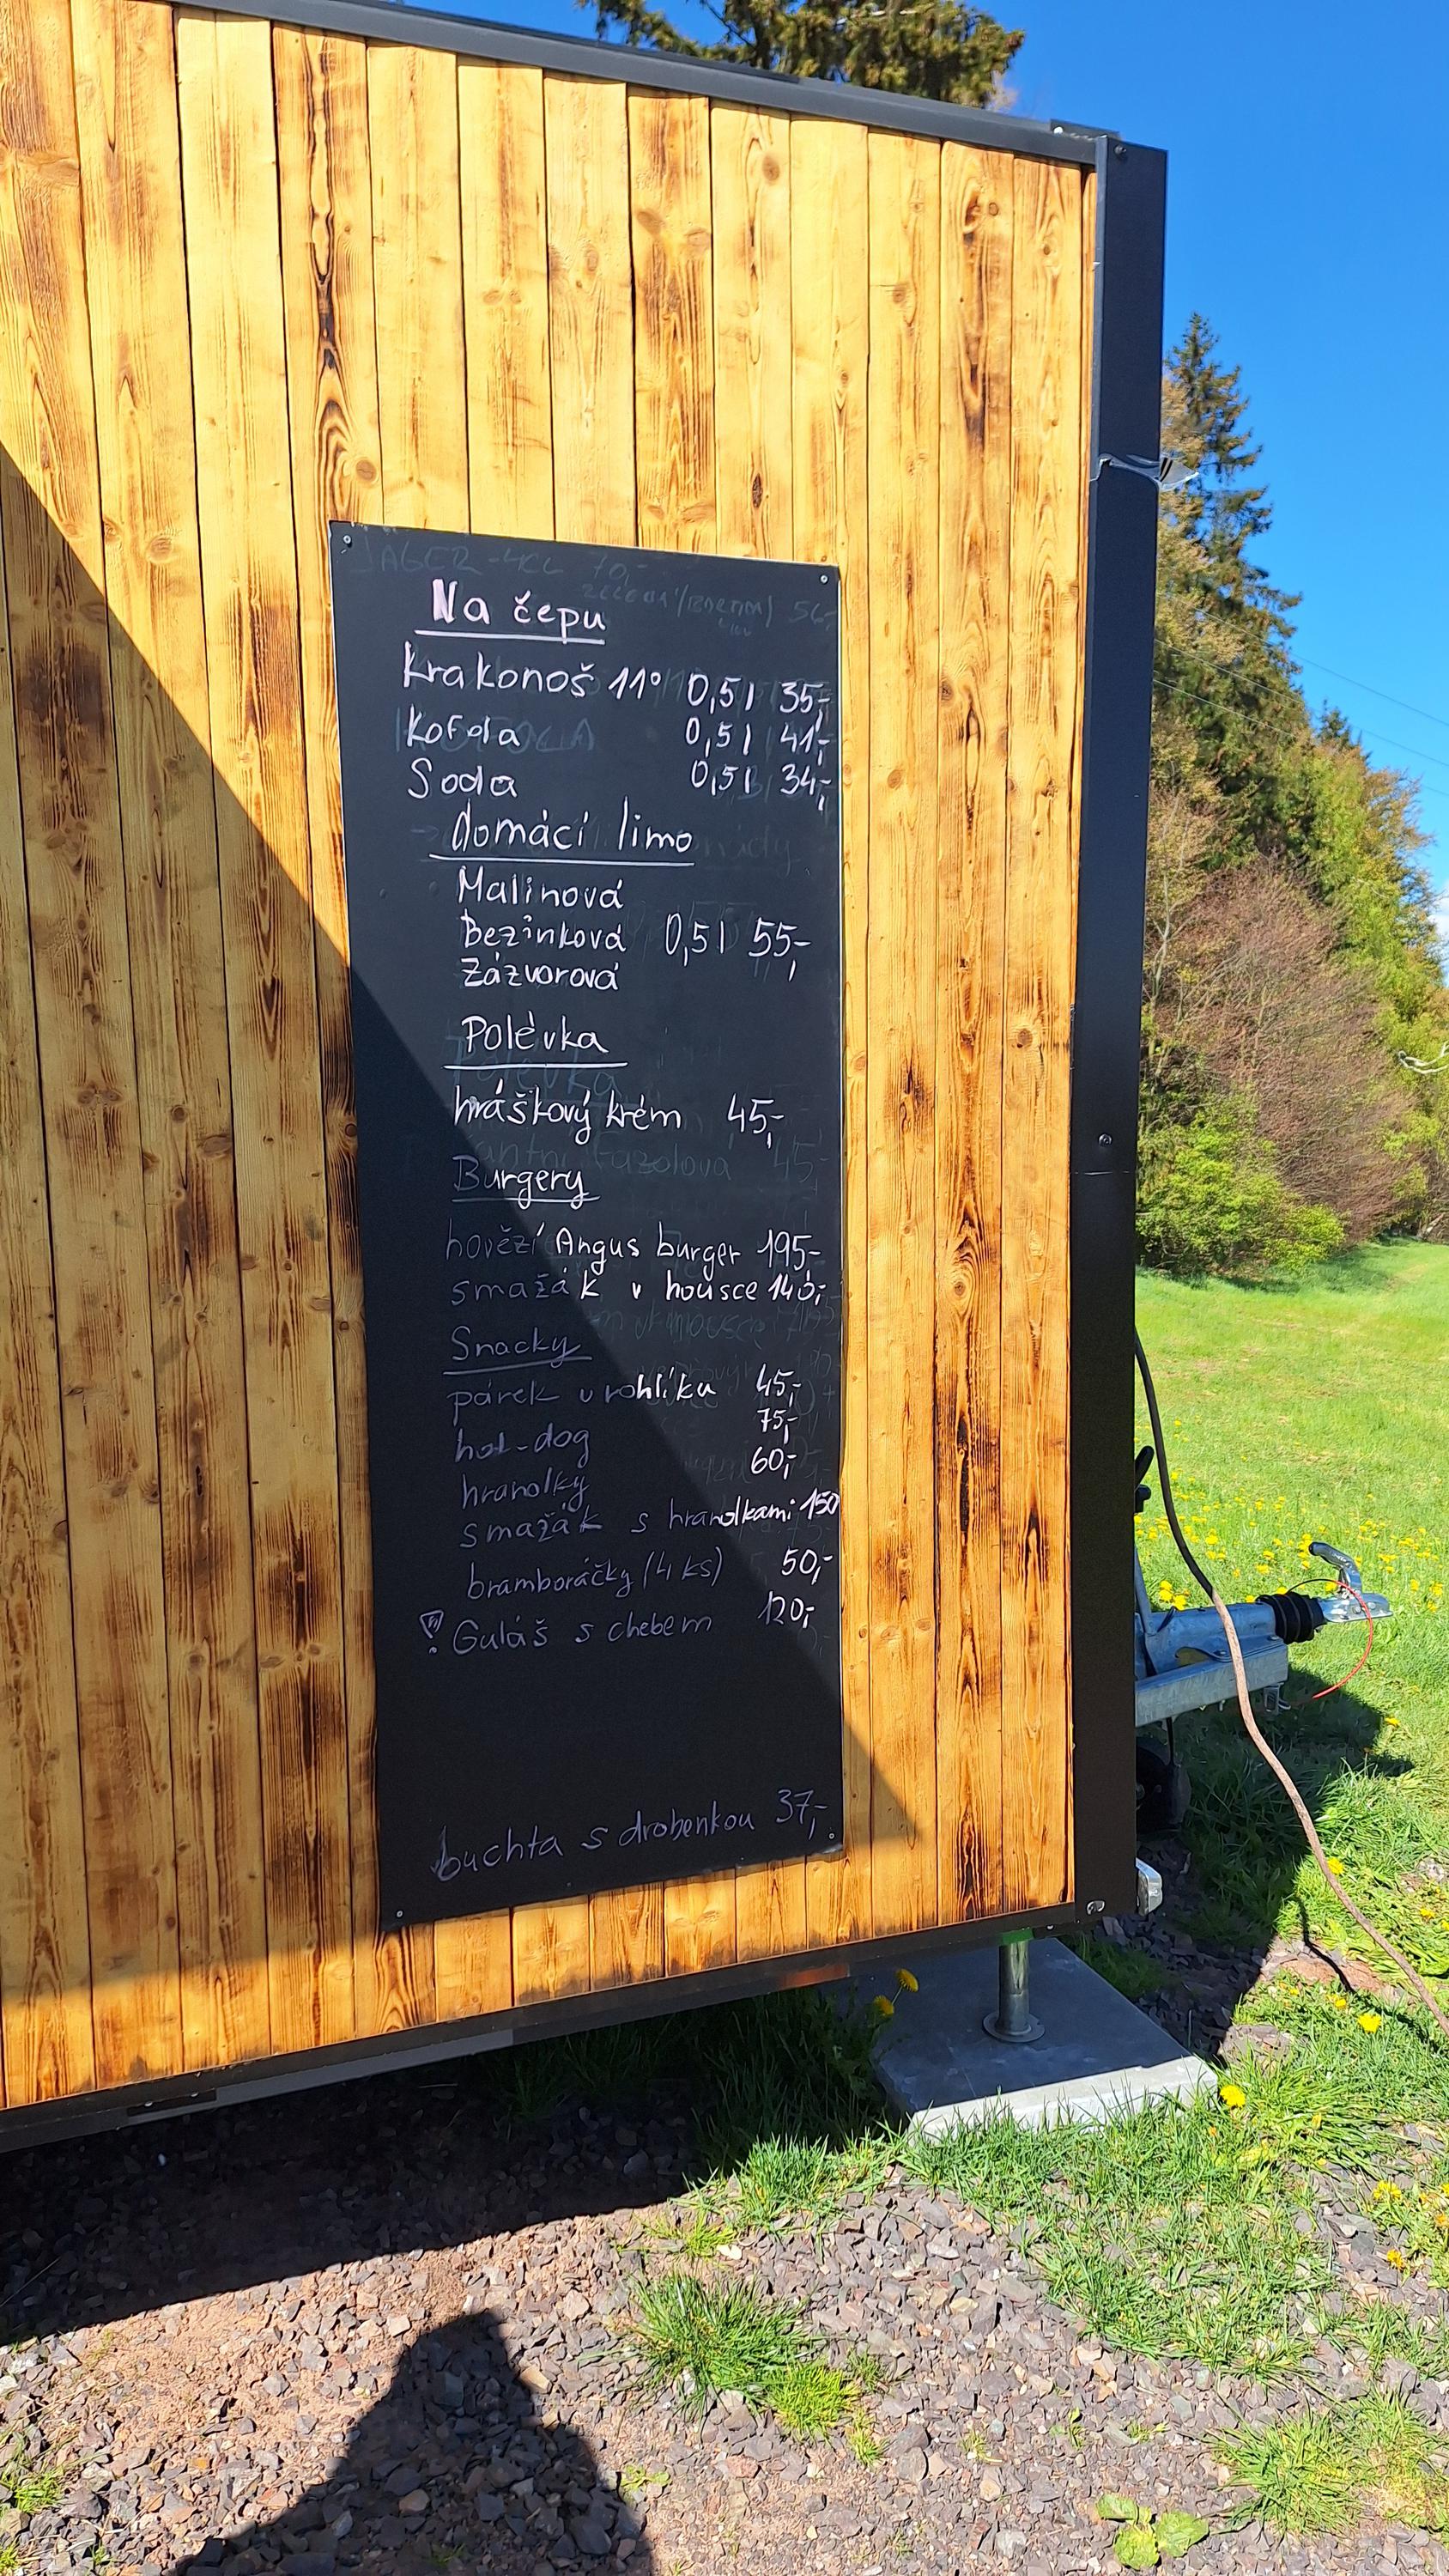 JÄGER - 4CL 70,-
56,-
Na čepu
Krakonoš 11° 0,5l 35,-
Kofola 0,5l 41,-
Soda 0,5l 34,-
domácí limo
Malinová
Bezinková 0,5l 55,-
Zázvorová
Polévka
hráškový krém 45,-
Burgery
hovězí Angus burger 195,-
smažák v housce 140,-
Snacky
párek v rohlíku 45,-
hot-dog 75,-
hranolky 60,-
smažák s hranolkami 150
bramboráčky (4 ks) 50,-
! Guláš s chebem 120,-
buchta s drobenkou 37,-